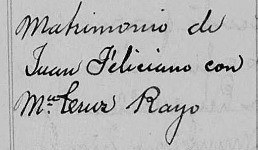 Matrimonio de
Juan Féliciano con
Ma. Cruz Rayo